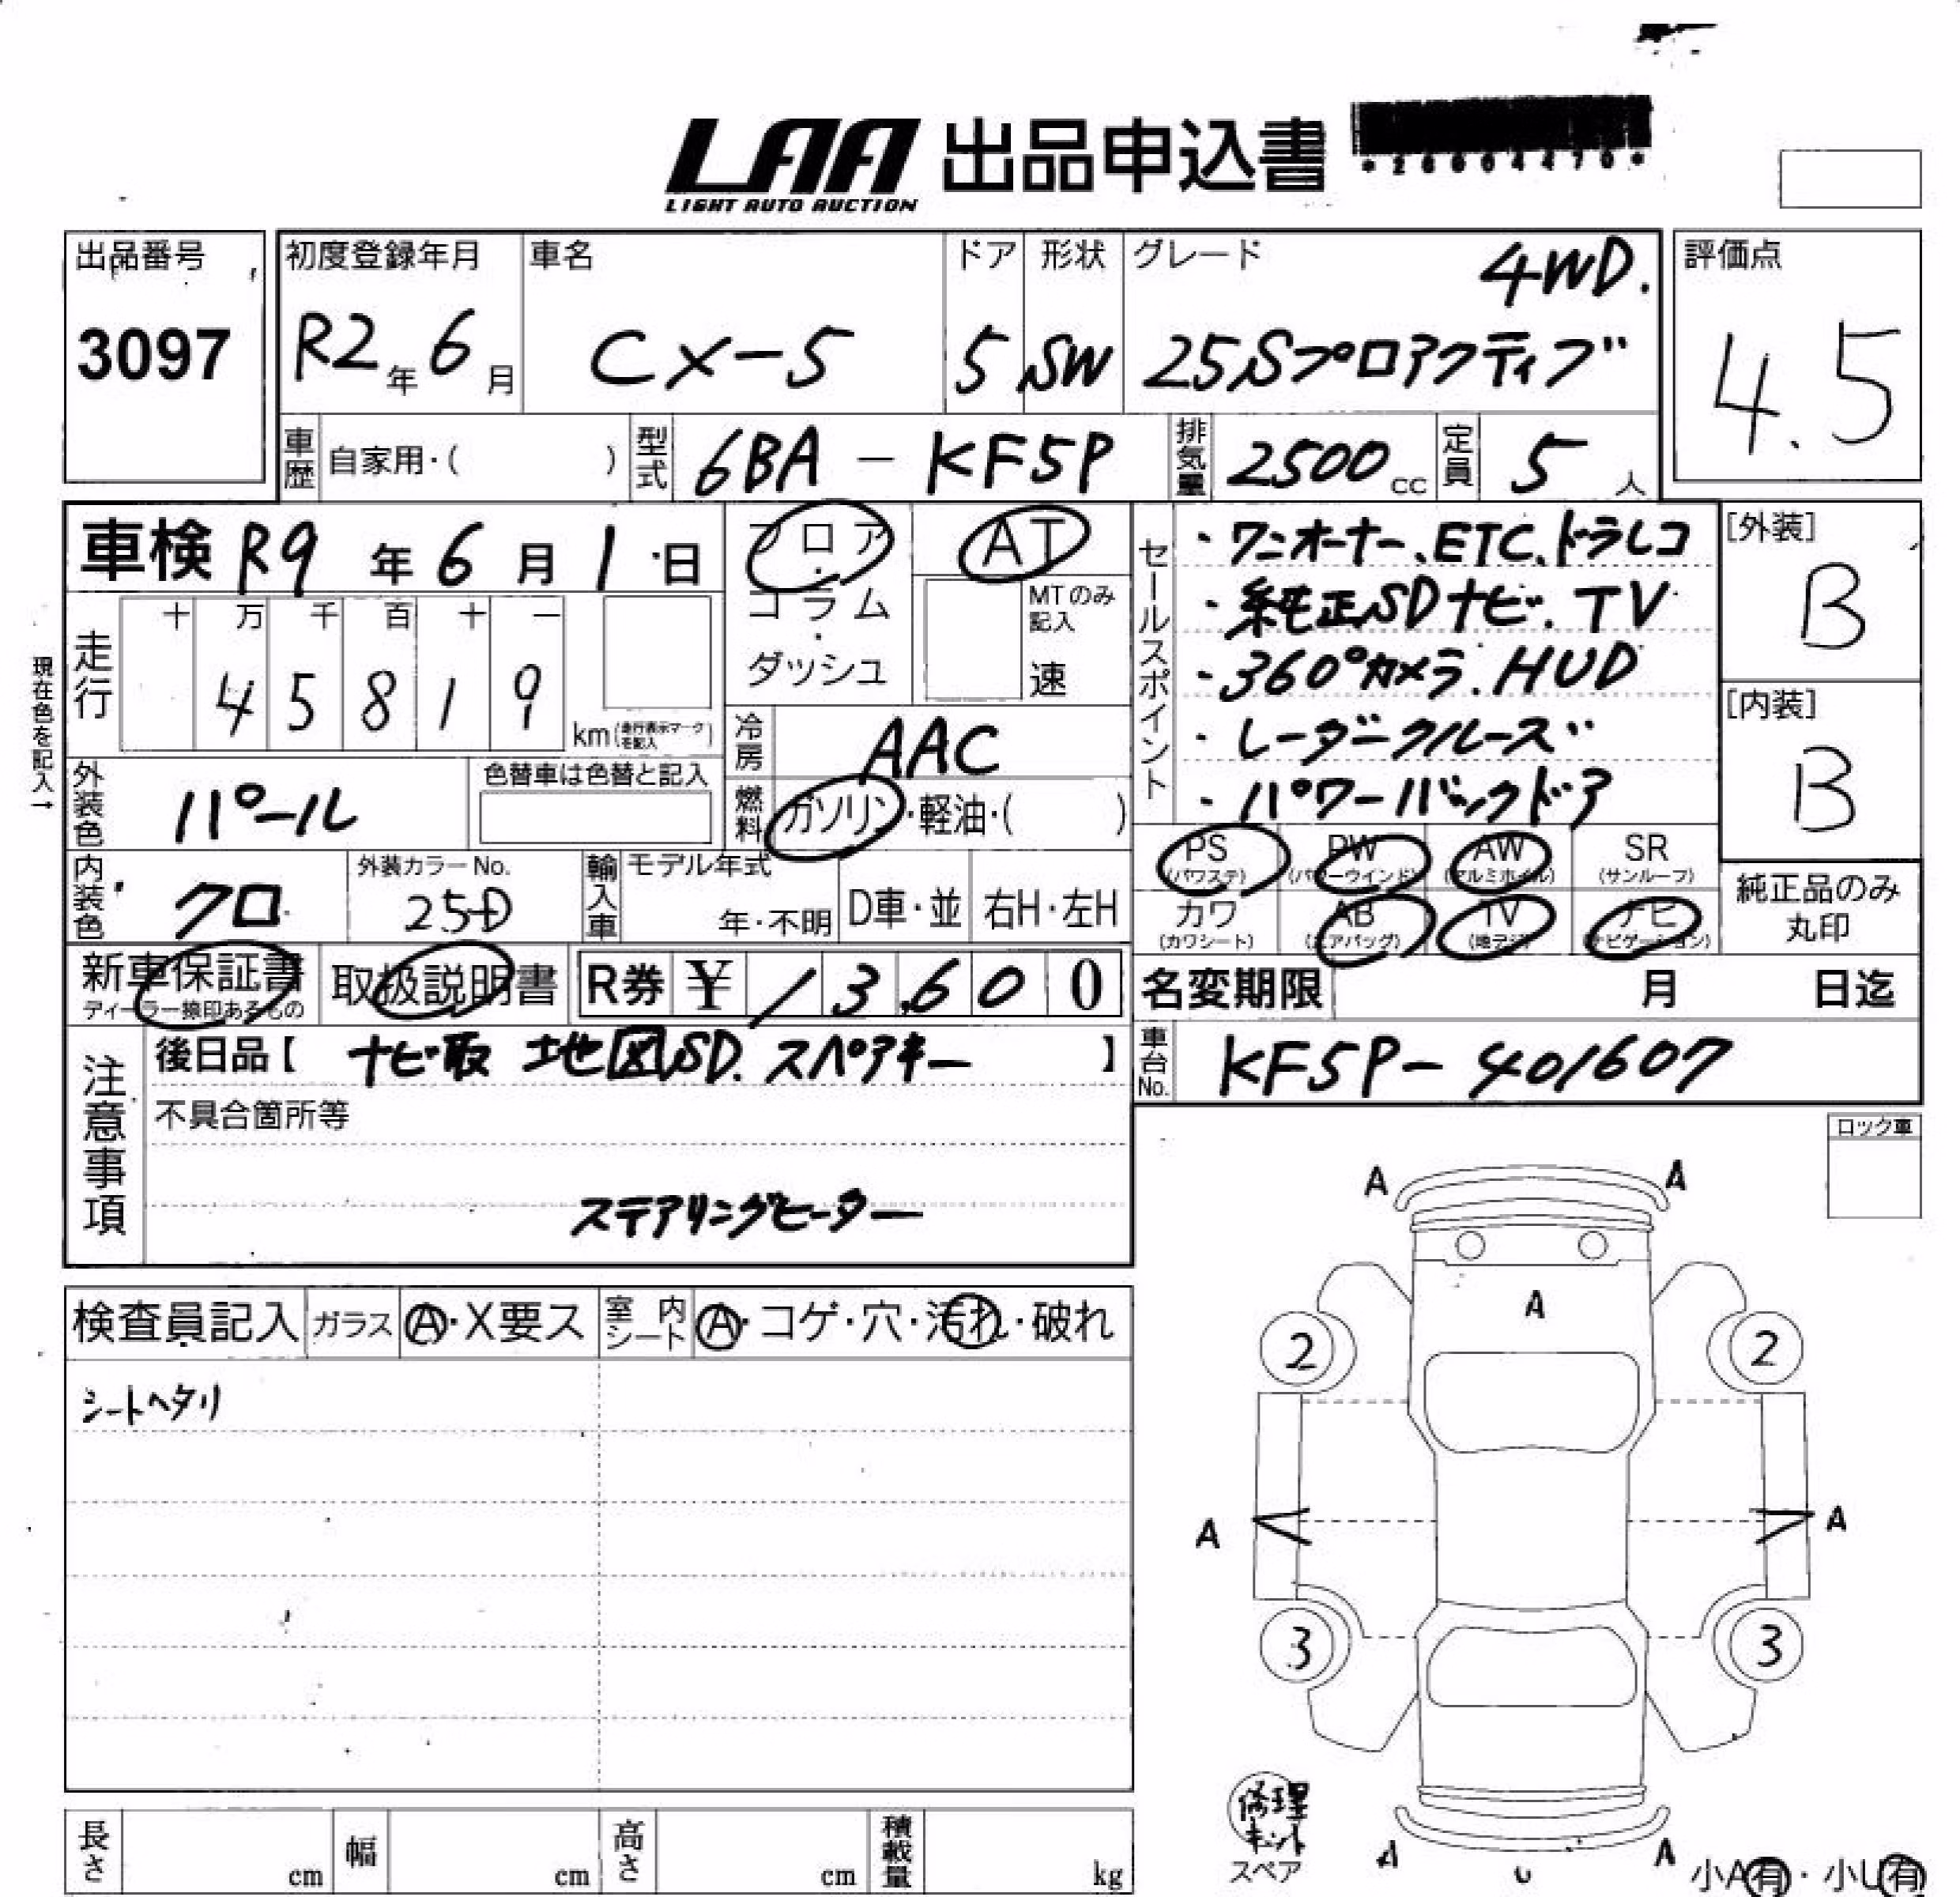 LAA 出品申込書
LIGHT AUTO AUCTION
出品番号
3097
初度登録年月
R2年6月
車名
CX-5
ドア
5
形状
SW
グレード
4WD.
25Sプロアクティブ
評価点
4.5
車歴 自家用・( )
型式 6BA - KF5P
排気量 2500cc
定員 5人
車検 R9年6月1日
現在色を記入→
走行
十 万 千 百 十 一
4 5 8 1 9
km(走行表示マークを記入)
フロア・コラム・ダッシュ
AT
MTのみ記入
速
冷房 AAC
燃料 ガソリン・軽油・( )
外装色 パール
色替車は色替と記入
内装色 クロ
外装カラーNo.
25D
輸入車
モデル年式
年・不明
D車・並
右H・左H
セールスポイント
・ワンオーナー、ETC、ドラレコ
・純正SDナビ、TV
・360°カメラ、HUD
・レーダークルーズ
・パワーバックドア
[外装]
B
[内装]
B
PS (パワステ)
PW (パワーウインド)
AW (アルミホイル)
SR (サンルーフ)
カワ (カワシート)
AB (エアバッグ)
TV (地デジ)
ナビ (ナビゲーション)
純正品のみ丸印
新車保証書
ディーラー捺印あるもの
取扱説明書
R券 ¥ 13,600
名変期限 月 日迄
車台No. KF5P-401607
注意事項
後日品【 ナビ取 地図SD. スペアキー 】
不具合箇所等
ステアリングヒーター
ロック車
検査員記入
ガラス Ⓐ・X要ス
室内シート Ⓐ・コゲ・穴・汚れ・破れ
シートヘタリ
A A
A
2 2
A A
3 3
修理キット
スペア
A U A
小A有・小U有
長さ cm
幅 cm
高さ cm
積載量 kg